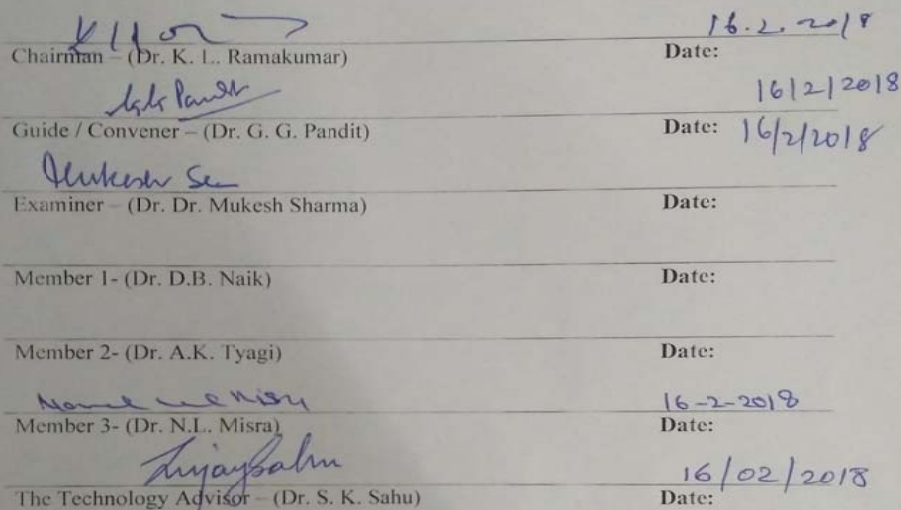 16.2.2018
Chairman – (Dr. K. L. Ramakumar) Date:
16/2/2018
Guide / Convener – (Dr. G. G. Pandit) Date: 16/2/2018
Mukesh
Examiner – (Dr. Dr. Mukesh Sharma) Date:
Member 1- (Dr. D.B. Naik) Date:
Member 2- (Dr. A.K. Tyagi) Date:
16-2-2018
Member 3- (Dr. N.L. Misra) Date:
16/02/2018
The Technology Advisor – (Dr. S. K. Sahu) Date: